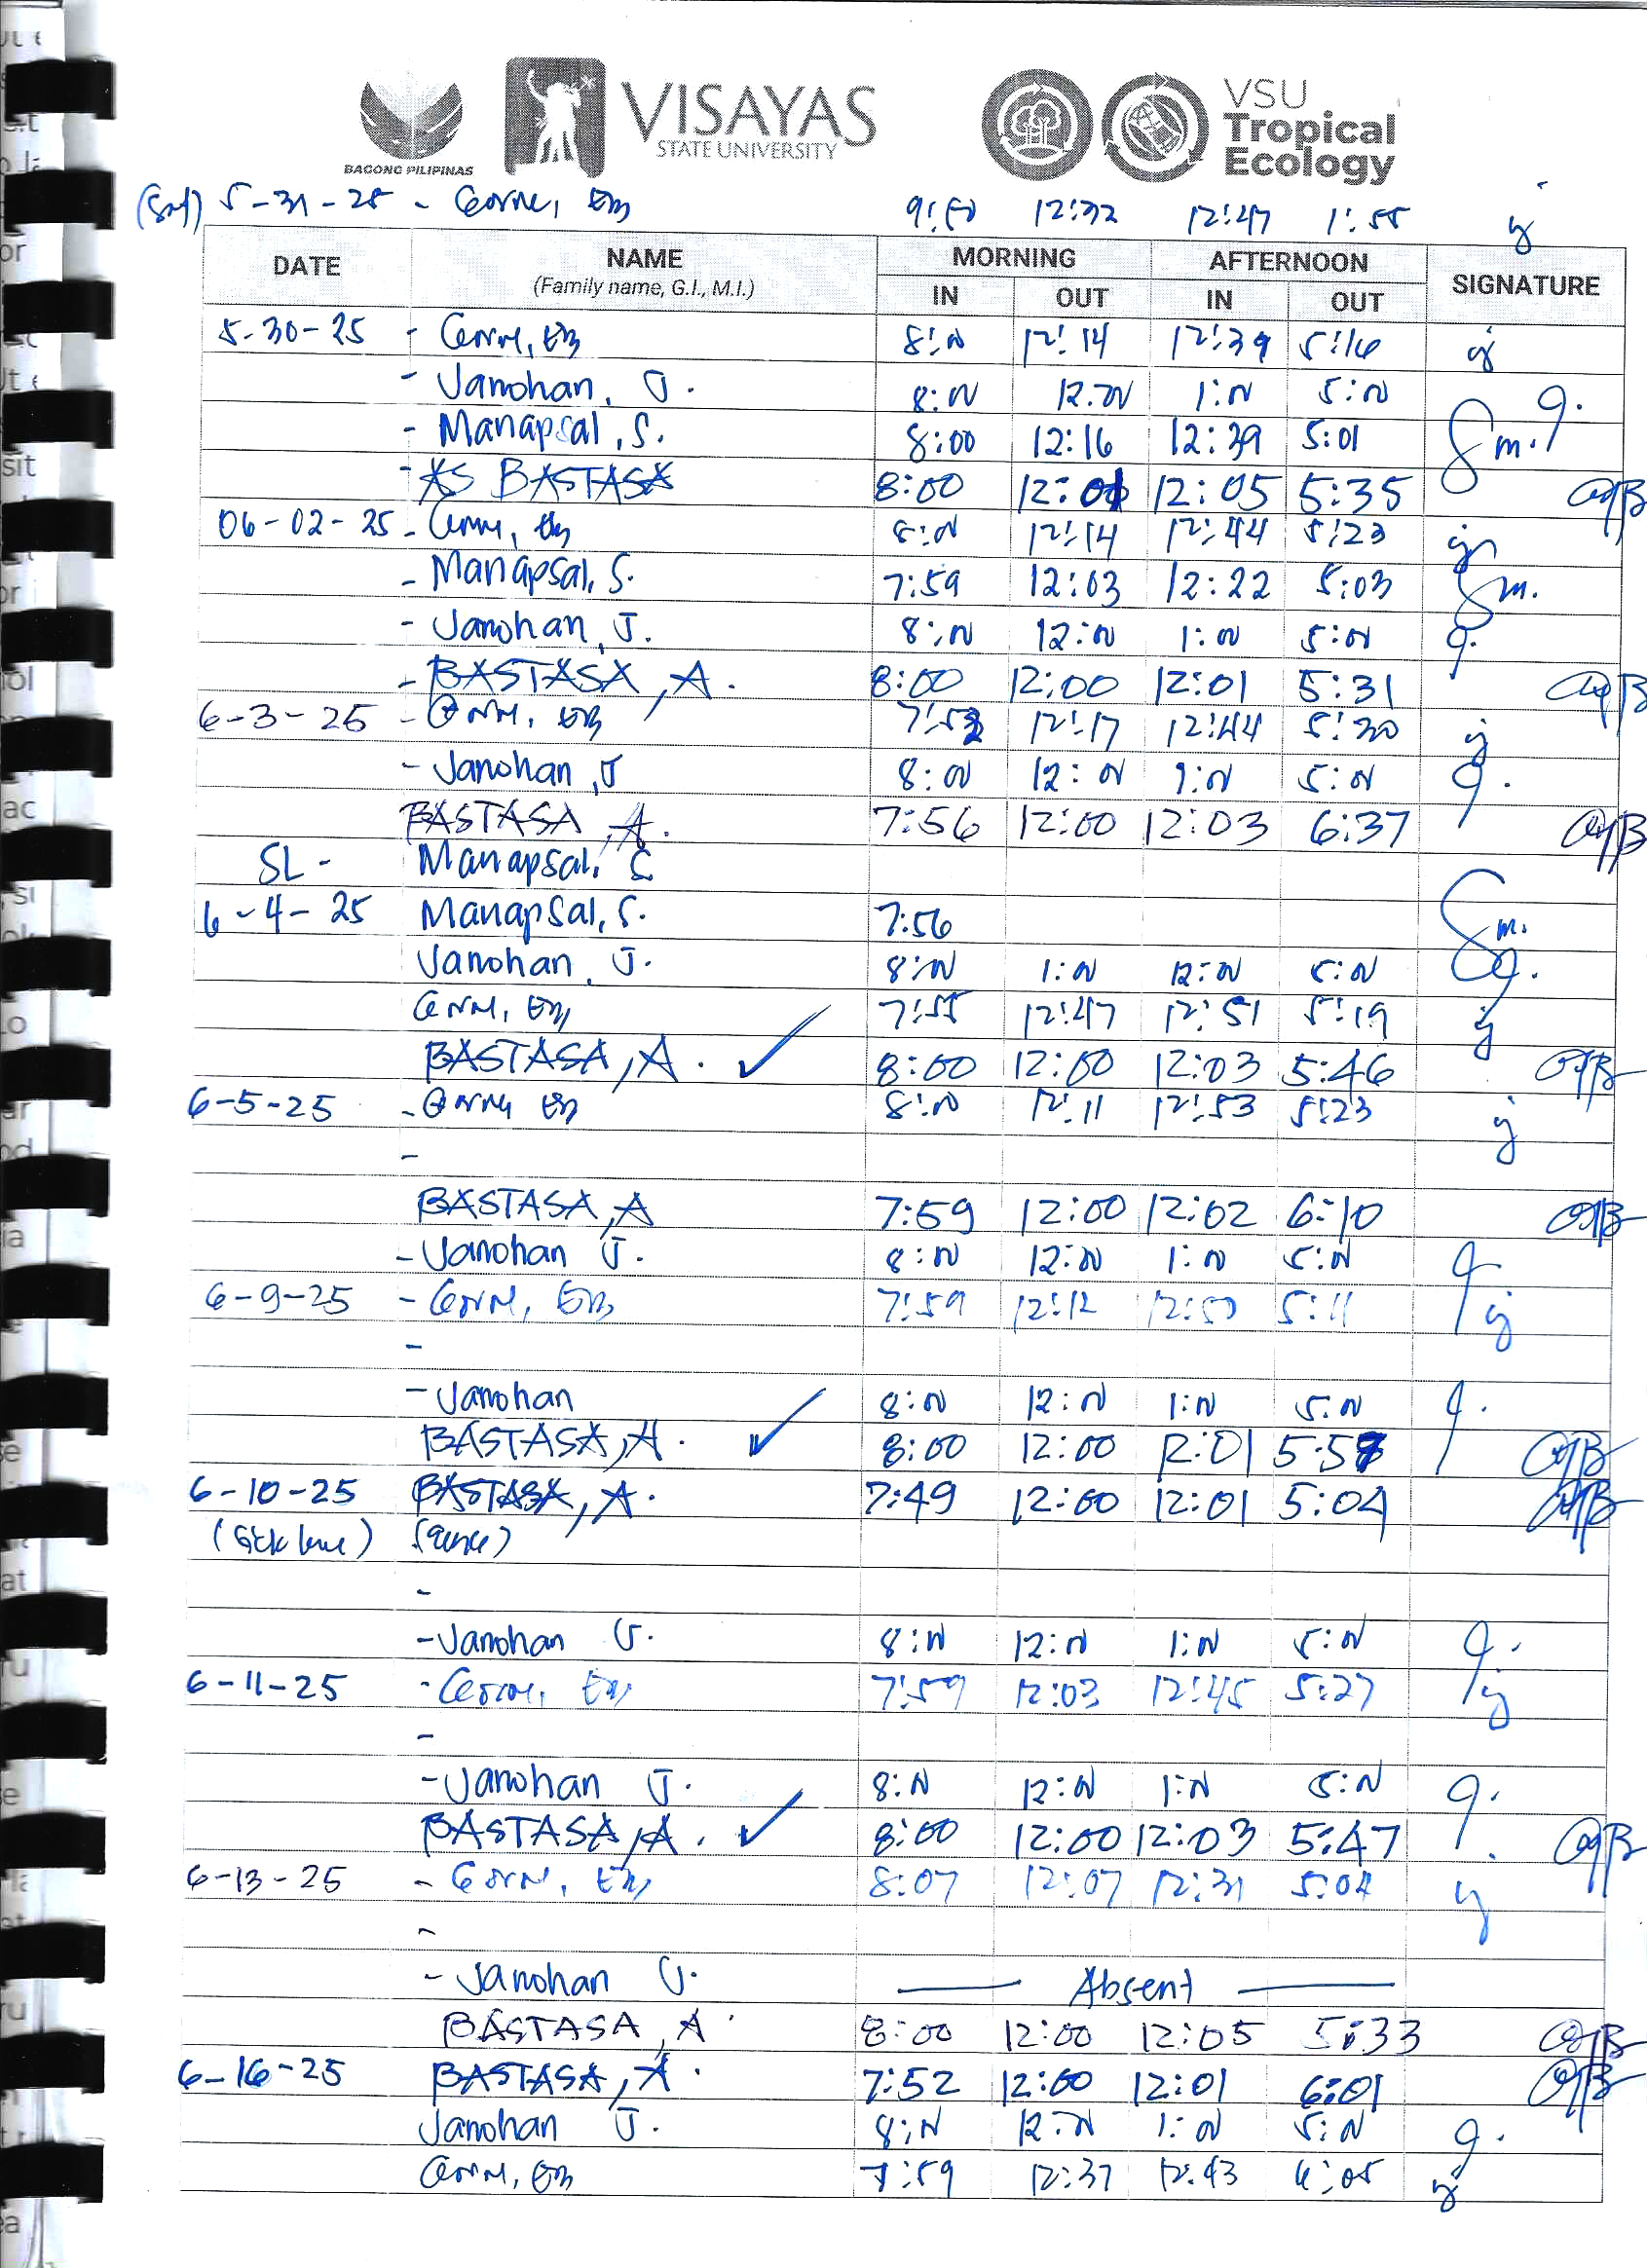 BAGONG PILIPINAS
VISAYAS
STATE UNIVERSITY
VSU
Tropical
Ecology
(Sat) 5-31-25 - 12:32 12:47 1:55
DATE NAME MORNING AFTERNOON SIGNATURE
(Family name, G.I., M.I.) IN OUT IN OUT
5-30-25 - 8:00 12:14 12:39 5:16
- Janohan, J. 8:00 12:00 1:00 5:00
- Manapsal, S. 8:00 12:16 12:39 5:01
- BASTASA 8:00 12:01 12:05 5:35
06-02-25 - 8:00 12:14 12:44 5:23
- Manapsal, S. 7:59 12:03 12:22 5:03
- Janohan, J. 8:00 12:00 1:00 5:00
- BASTASA, A. 8:00 12:00 12:01 5:31
6-3-25 - 12:17 12:44 5:20
- Janohan, J 8:00 12:00 1:00 5:00
BASTASA, A. 7:56 12:00 12:03 6:37
SL - Manapsal, S
6-4-25 Manapsal, S. 7:56
Janohan, J. 8:00 1:00 12:00 5:00
7:55 12:47 12:51 5:19
BASTASA, A. ✓ 8:00 12:00 12:03 5:46
6-5-25 - 8:00 12:11 12:53 5:23
-
BASTASA, A 7:59 12:00 12:02 6:10
- Janohan J. 8:00 12:00 1:00 5:00
6-9-25 - 7:59 12:12 12:50 5:11
-
- Janohan 8:00 12:00 1:00 5:00
BASTASA, A. ✓ 8:00 12:00 12:01
6-10-25 BASTASA, A. 7:49 12:00 12:01 5:04
(Sick leave)
-
- Janohan J. 8:00 12:00 1:00 5:00
6-11-25 - 7:59 12:03 12:45 5:27
-
- Janohan J. 8:00 12:00 1:00 5:00
BASTASA, A. ✓ 8:00 12:00 12:03 5:47
6-13-25 - 8:07 12:07 12:31 5:04
-
- Janohan J. Absent
BASTASA, A. 8:00 12:00 12:05 5:33
6-16-25 BASTASA, A. 7:52 12:00 12:01 6:01
Janohan J. 8:00 12:00 1:00 5:00
7:59 12:37 12:43 6:05